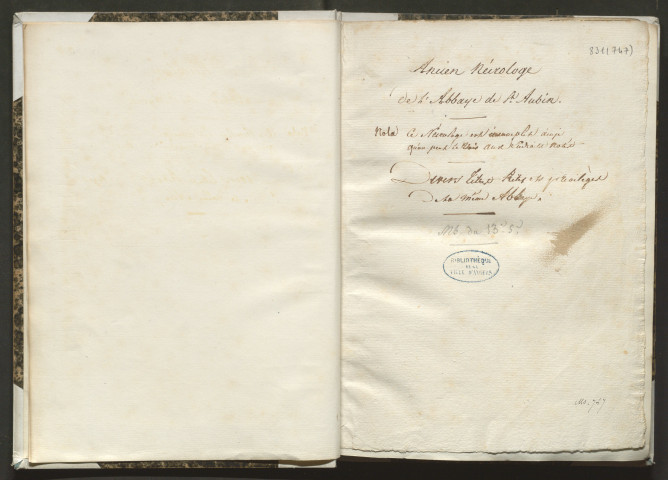 831 (747)
Ancien Nécrologe
De l'Abbaye de St. Aubin.
Nota Ce Nécrologe est incomplet ainsi
qu'on peut le Voir aux
Divers Titres et privilèges
De la même Abbaye.
Ms. du 13e. Se.
BIBLIOTHÈQUE
DE LA
VILLE D'ANGERS
Ms. 747